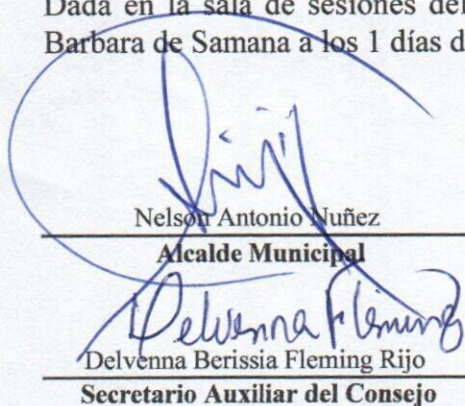 Dada en la sala de sesiones del
Barbara de Samana a los 1 días d
Nelson Antonio Nuñez
Alcalde Municipal
Delvenna Fleming
Delvenna Berissia Fleming Rijo
Secretario Auxiliar del Consejo